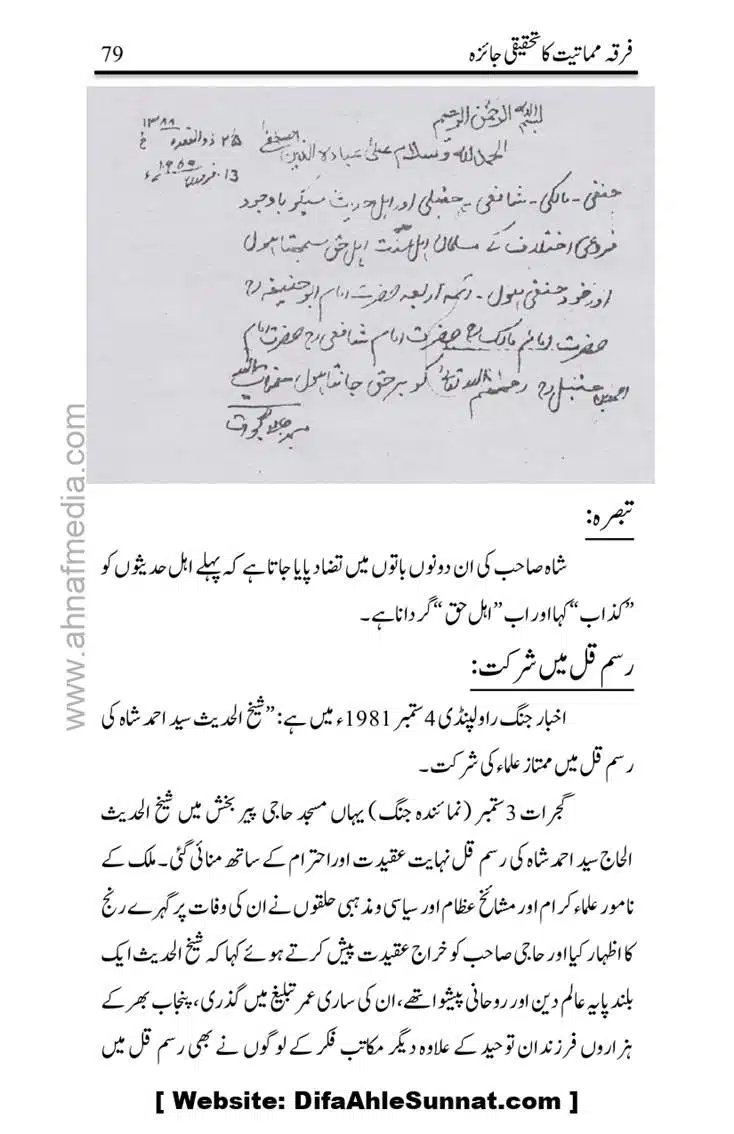 فرقہ مماتیت کا تحقیقی جائزہ 79
بسم اللہ الرحمٰن الرحیم
الحمد للہ وسلام علیٰ عبادہ الذین اصطفےٰ
۲۵ ذوالقعدہ ۱۳۸۸
حنفی - مالکی - شافعی - حنبلی اور اہل حدیث سب کو باوجود
فروعی اختلاف کے مسلمان اہل سنت اہل حق سمجھتا ہوں
اور خود حنفی ہوں - ائمہ اربعہ حضرت امام ابو حنیفہ رح
حضرت امام مالک رح حضرت امام شافعی رح حضرت امام
احمد بن حنبل رح رحمہم اللہ تعالیٰ کو برحق جانتا ہوں
تبصرہ:
شاہ صاحب کی ان دونوں باتوں میں تضاد پایا جاتا ہے کہ پہلے اہل حدیثوں کو
”کذاب“ کہا اور اب ”اہل حق“ گردانا ہے۔
رسم قل میں شرکت:
اخبار جنگ راولپنڈی 4 ستمبر 1981ء میں ہے: ”شیخ الحدیث سید احمد شاہ کی
رسم قل میں ممتاز علماء کی شرکت۔
گجرات 3 ستمبر (نمائندہ جنگ) یہاں مسجد حاجی پیر بخش میں شیخ الحدیث
الحاج سید احمد شاہ کی رسم قل نہایت عقیدت اور احترام کے ساتھ منائی گئی۔ ملک کے
نامور علماء کرام اور مشائخ عظام اور سیاسی و مذہبی حلقوں نے ان کی وفات پر گہرے رنج
کا اظہار کیا اور حاجی صاحب کو خراج عقیدت پیش کرتے ہوئے کہا کہ شیخ الحدیث ایک
بلند پایہ عالم دین اور روحانی پیشوا تھے، ان کی ساری عمر تبلیغ میں گذری، پنجاب بھر کے
ہزاروں فرزندان توحید کے علاوہ دیگر مکاتب فکر کے لوگوں نے بھی رسم قل میں
www.ahnafmedia.com
[ Website: DifaAhleSunnat.com ]